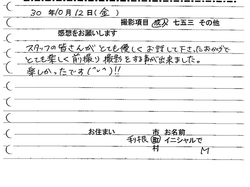 30年10月12日(金)
撮影項目 成人 七五三 その他
感想をお願いします
スタッフの皆さんがとても優しくお話して下さったおかげで
とても楽しく前撮り撮影をする事が出来ました。
楽しかったです(^ー^)!!
お住まい 利根 市 町 村 お名前 イニシャルで M